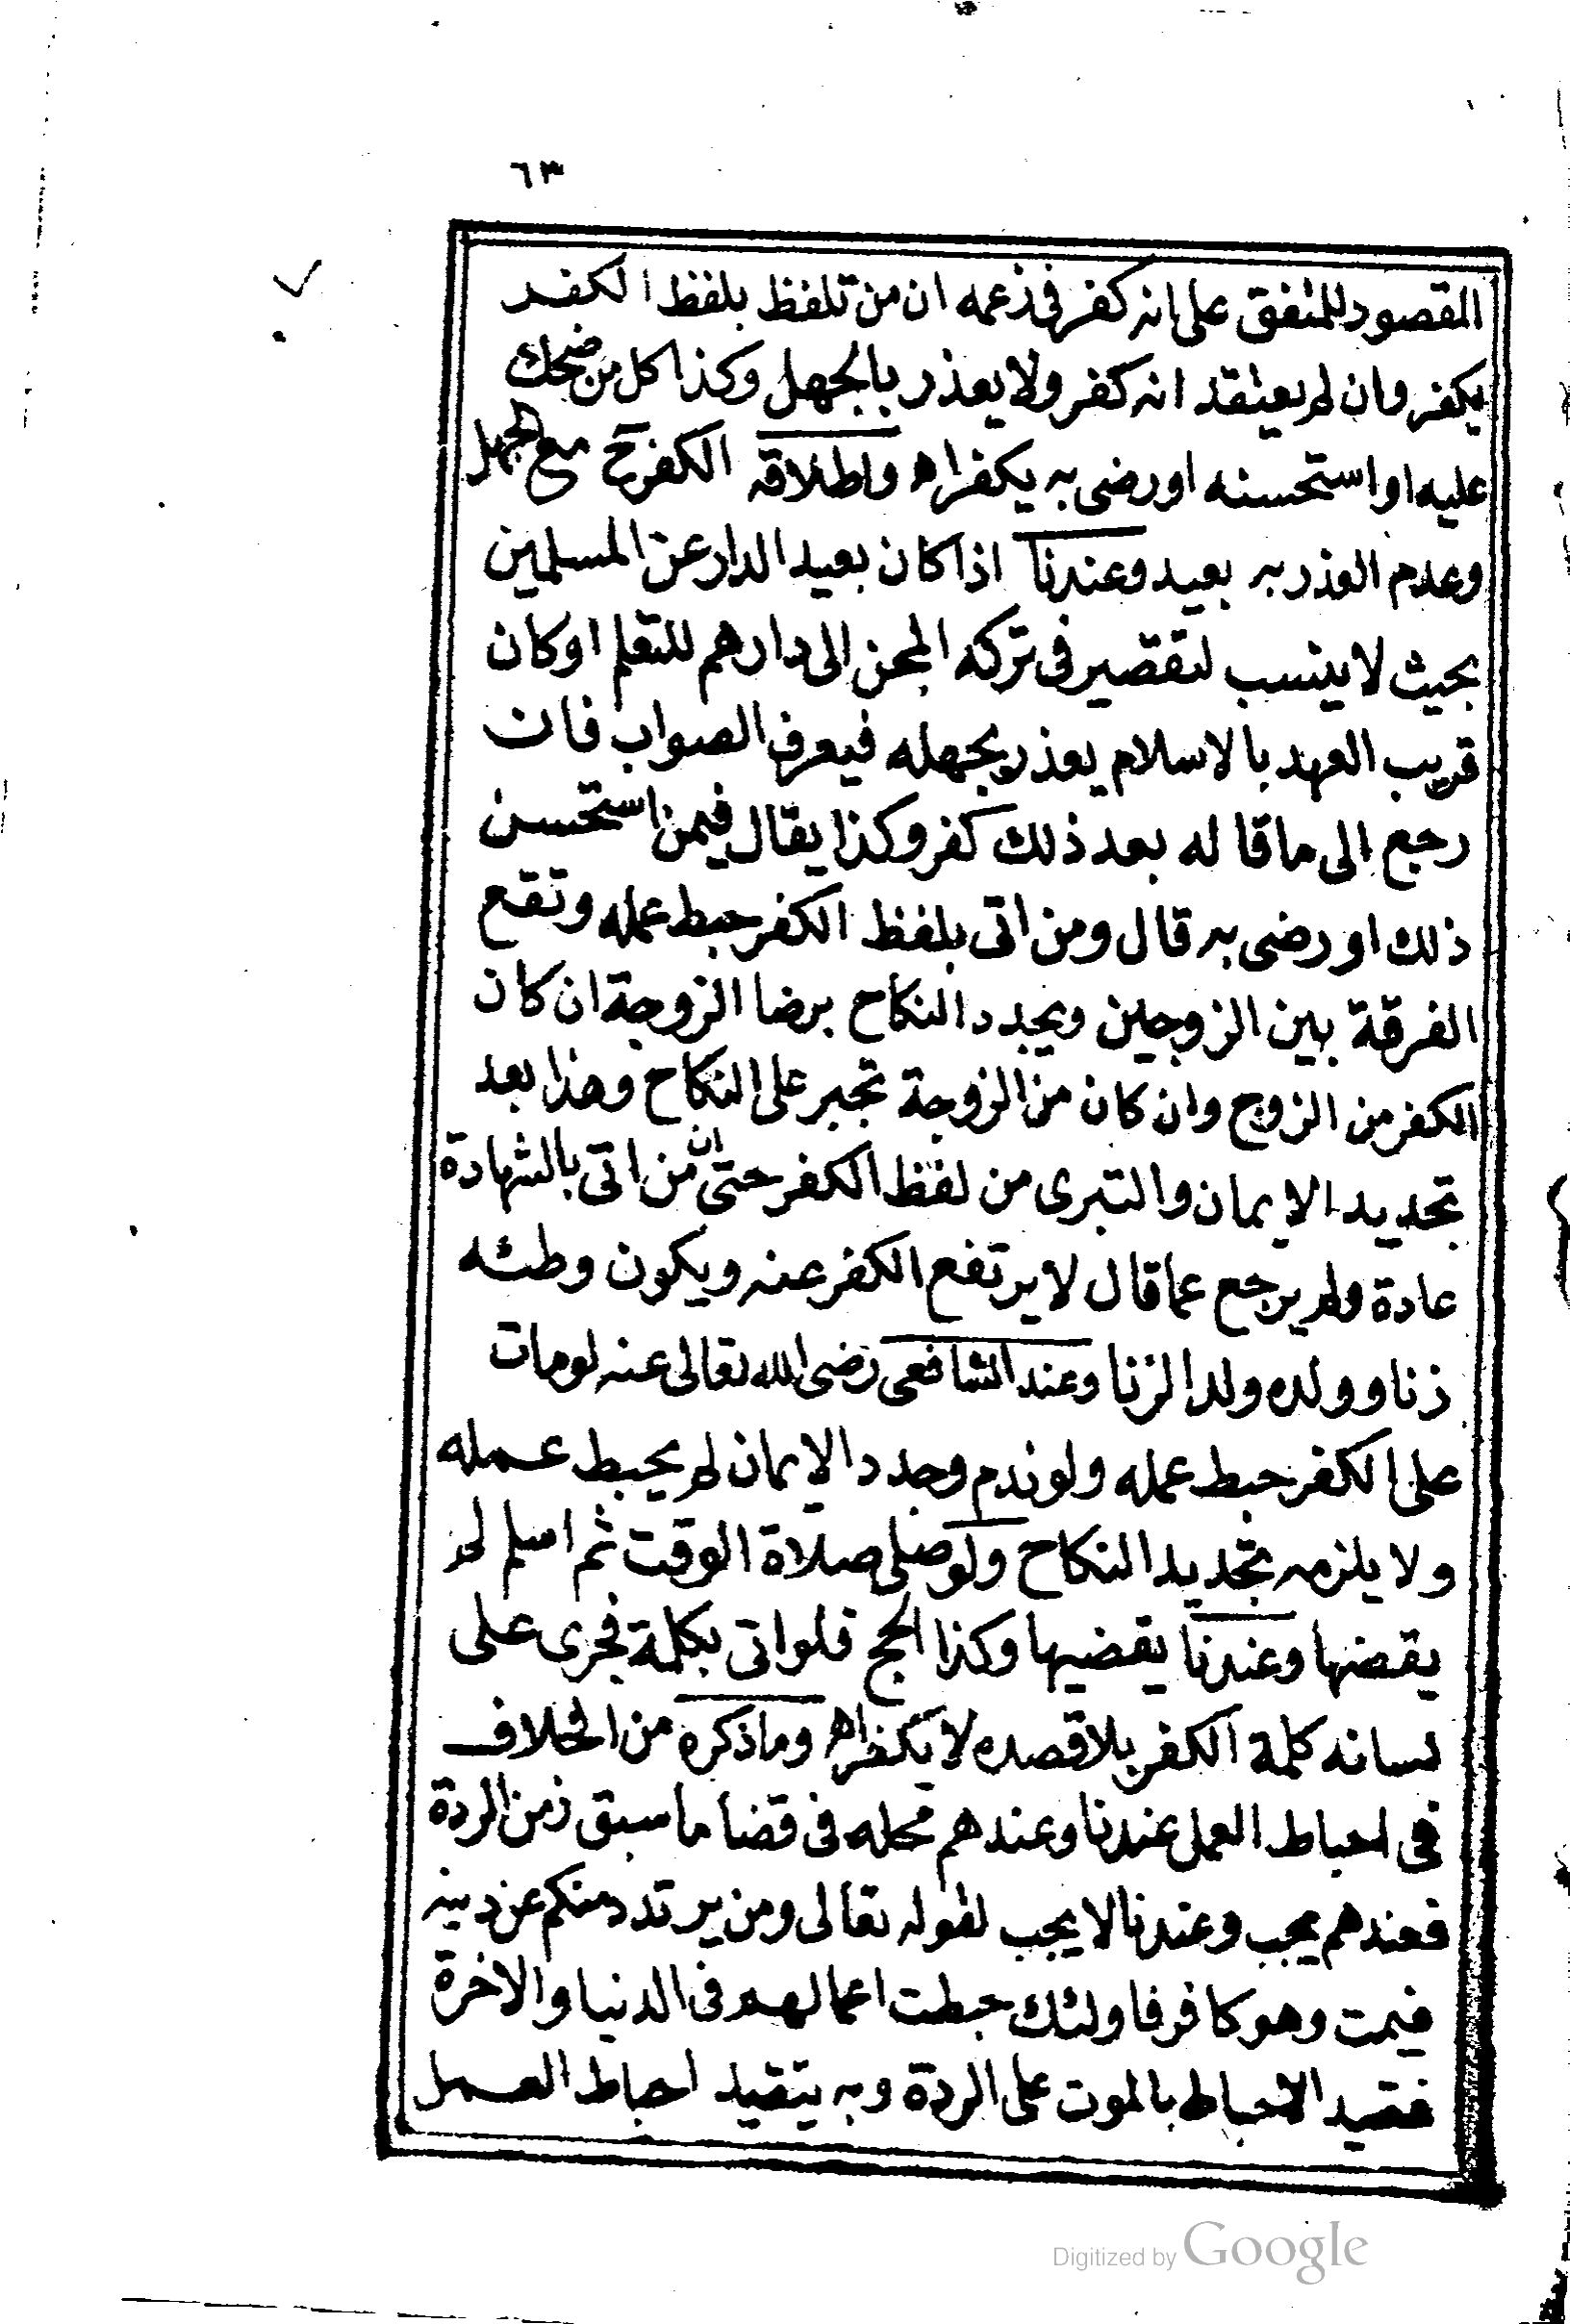 ٦٣
المقصود للمتفق على انه كفر في زعمه ان من تلفظ بلفظ الكفر
يكفر وان لم يعتقد انه كفر ولا يعذر بالجهل وكذا كل من ضحك
عليه او استحسنه او رضى به يكفر اه واطلاقه الكفر ح مع الجهل
وعدم العذر به بعيد وعندنا اذا كان بعيد الدار عن المسلمين
بحيث لا ينسب لتقصير في تركه المجئ الى دارهم للتعلم او كان
قريب العهد بالاسلام يعذر بجهله فيعرف الصواب فان
رجع الى ما قاله بعد ذلك كفر وكذا يقال فيمن استحسن
ذلك او رضى به قال ومن اتى بلفظ الكفر حبط عمله وتقع
الفرقة بين الزوجين ويجدد النكاح برضا الزوجة ان كان
الكفر من الزوج وان كان من الزوجة تجبر على النكاح وهذا بعد
تجديد الايمان والتبرى من لفظ الكفر حتى ان من اتى بالشهادة
عادة ولم يرجع عما قال لا يرتفع الكفر عنه ويكون وطئه
زنا وولده ولد الزنا وعند الشافعى رضى الله تعالى عنه لو مات
على الكفر حبط عمله ولو ندم وجدد الايمان لم يحبط عمله
ولا يلزمه تجديد النكاح ولو صلى صلاة الوقت ثم اسلم لم
يقضها وعندنا يقضيها وكذا الحج فلو اتى بكلمة فجرى على
لسانه كلمة الكفر بلا قصده لا يكفر اه وما ذكره من الخلاف
في احباط العمل عندنا وعندهم محله في قضا ما سبق زمن الردة
فعندهم يجب وعندنا لا يجب لقوله تعالى ومن يرتدد منكم عن دينه
فيمت وهو كافر فاولئك حبطت اعمالهم في الدنيا والاخرة
فقيد الاحباط بالموت على الردة وبه يتقيد احباط العمل
Digitized by Google